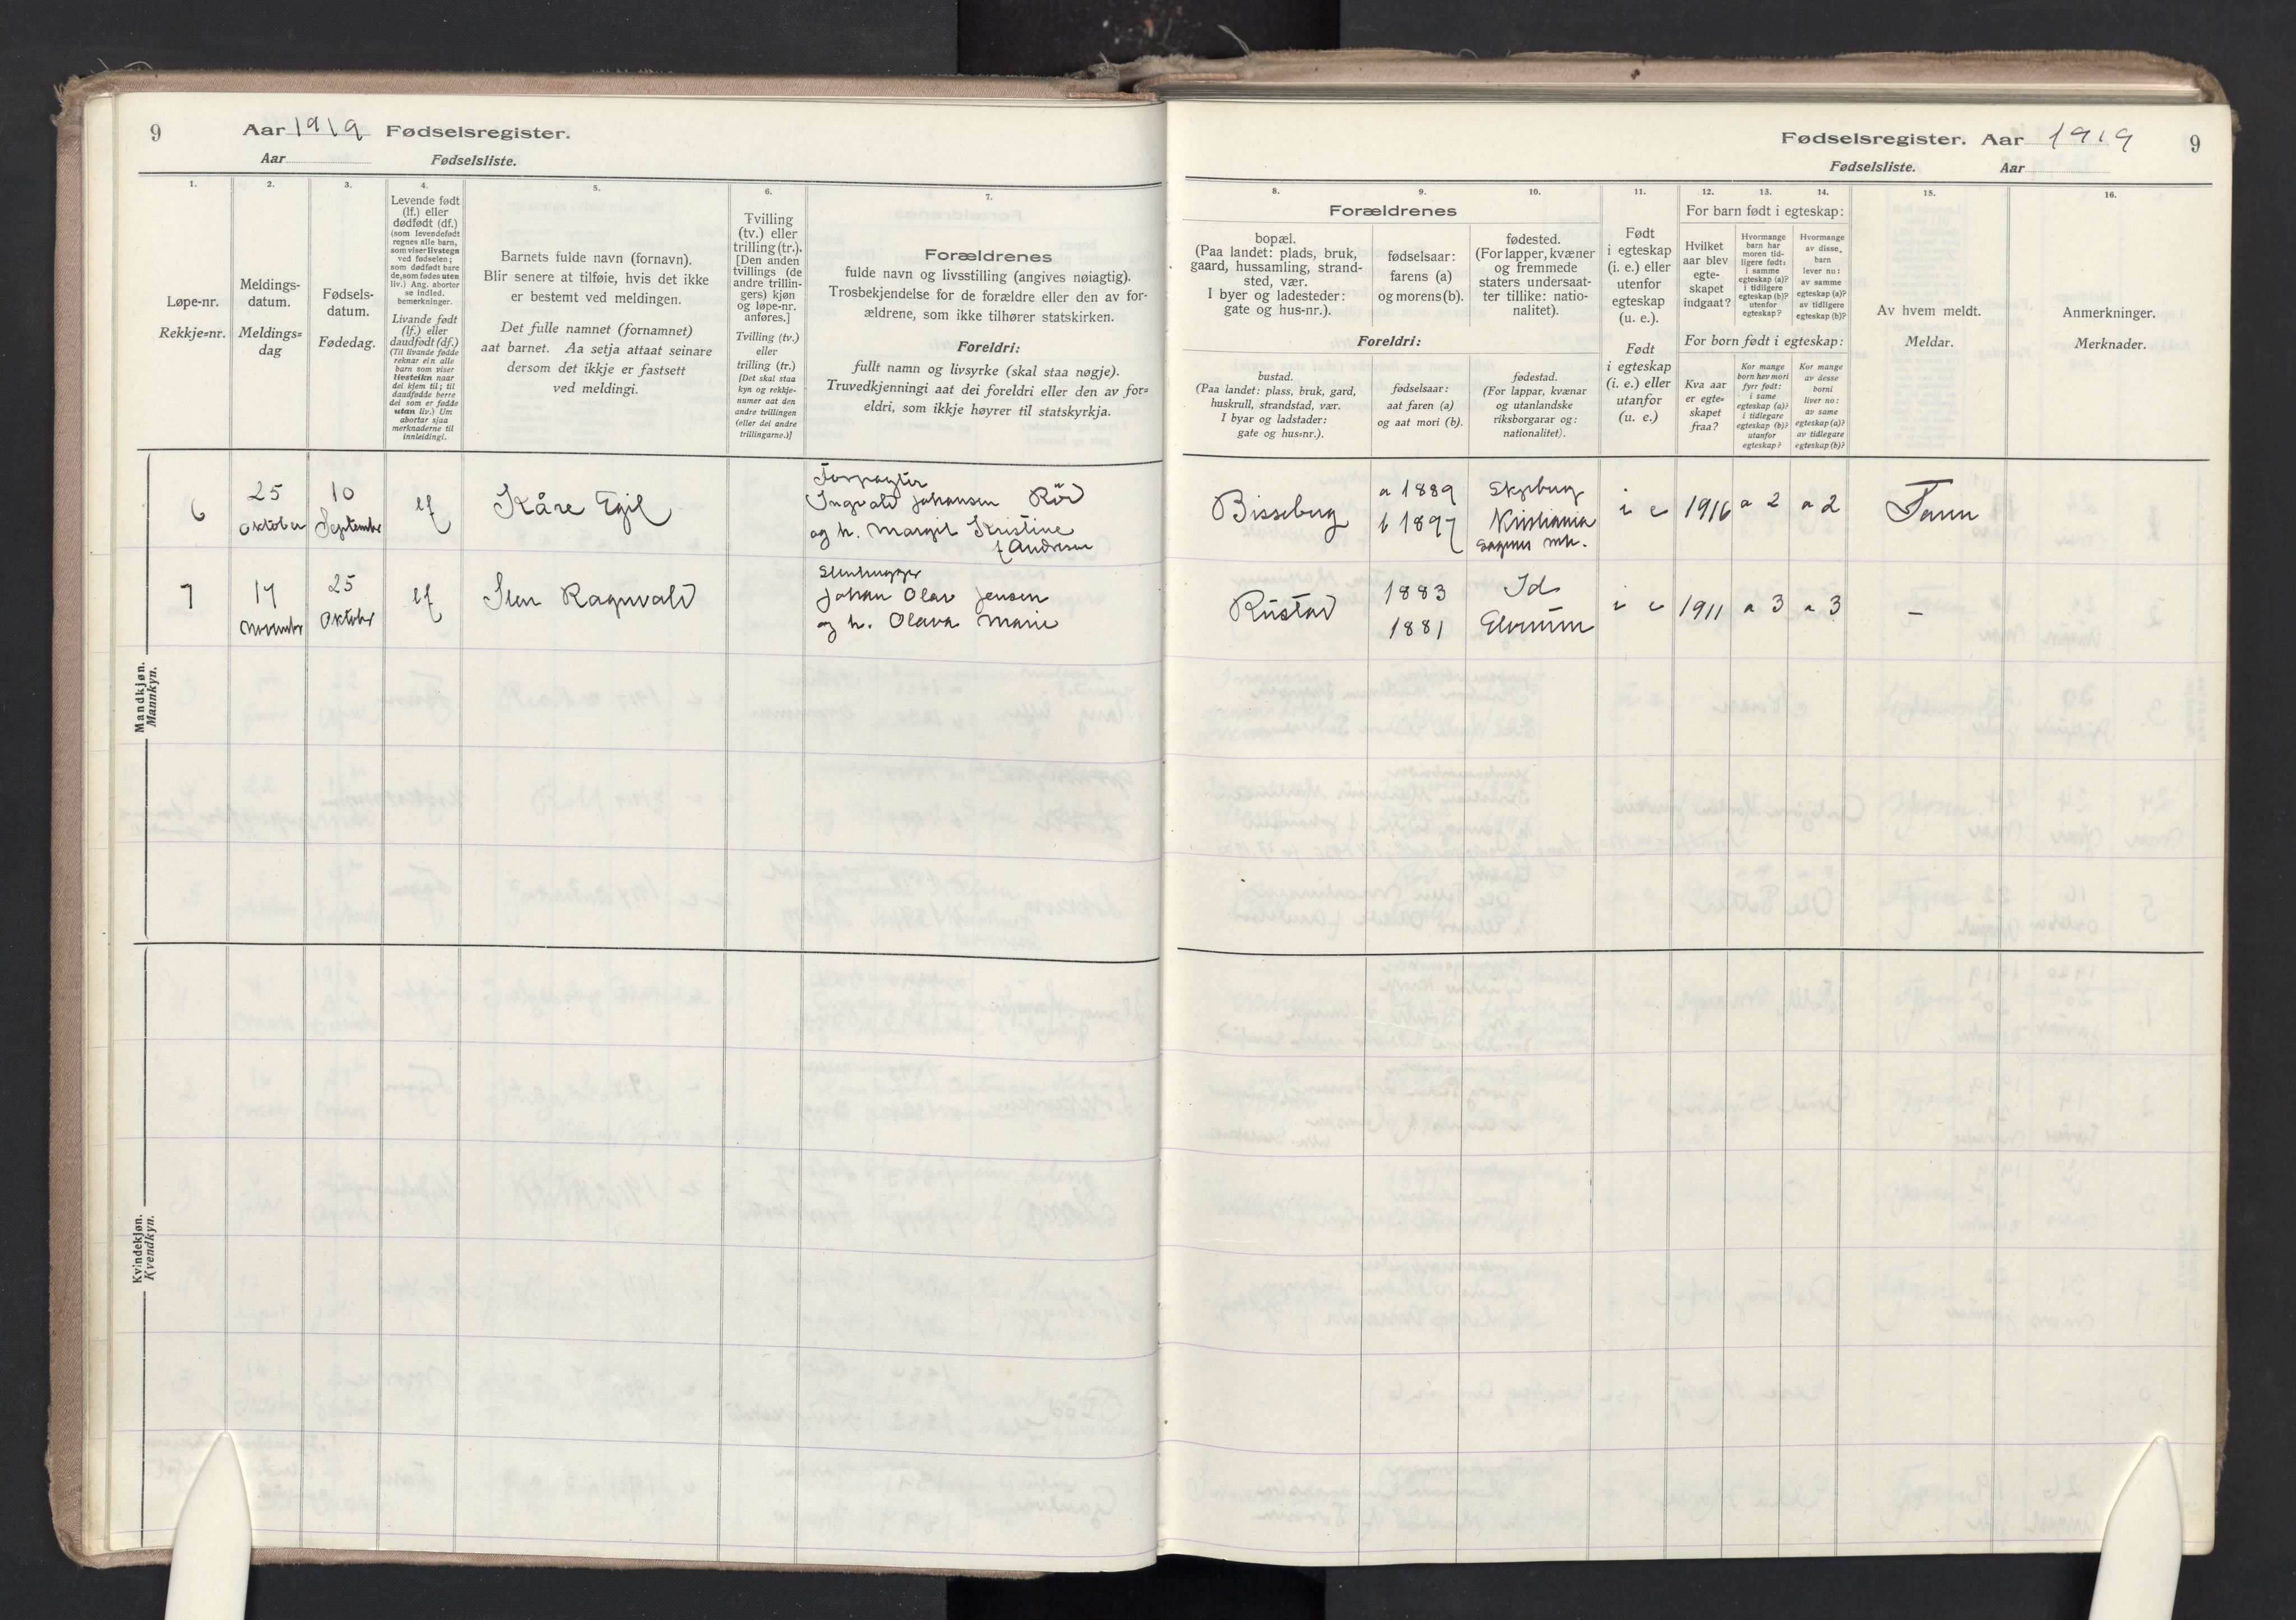 9
Aar 1919 Fødselsregister.
Aar Fødselsliste.
1.
2.
3.
4.
5.
6.
7.
Løpe-nr.
Rekkje=nr.
Meldings-
datum.
Meldings=
dag
Fødsels-
datum.
Fødedag.
Levende født
(lf.) eller
dødfødt (df.)
(som levendefødt
regnes alle barn,
som viser livstegn
ved fødselen;
som dødfødt bare
de, som fødes uten
liv.) Ang. aborter
se indled.
bemerkninger.
Livande født
(lf.) eller
daudfødt (df.)
(Til livande fødde
reknar ein alle
barn som viser
livsteikn naar
dei kjem til; til
daudfødde berre
dei som er fødde
utan liv.) Um
abortar sjaa
merknaderne til
innleidingi.
Barnets fulde navn (fornavn).
Blir senere at tilføie, hvis det ikke
er bestemt ved meldingen.
Det fulle namnet (fornamnet)
aat barnet. Aa setja attaat seinare
dersom det ikkje er fastsett
ved meldingi.
Tvilling
(tv.) eller
trilling (tr.).
[Den anden
tvillings (de
andre trillin-
gers) kjøn
og løpe-nr.
anføres.]
Tvilling (tv.)
eller
trilling (tr.)
[Det skal staa
kyn og rekkje-
numer aat den
andre tvillingen
(eller dei andre
trillingarne.)]
Forældrenes
fulde navn og livsstilling (angives nøiagtig).
Trosbekjendelse for de forældre eller den av for-
ældrene, som ikke tilhører statskirken.
Foreldri:
fullt namn og livsyrke (skal staa nøgje).
Truvedkjenningi aat dei foreldri eller den av for=
eldri, som ikkje høyrer til statskyrkja.
Mandkjøn.
Mannkyn.
6
25
Oktober
10
September
lf
Kåre Egil
Forpagter
Ingvald Johansen Röd
og h. Margit Kristine
f Andresen
7
14
November
25
Oktober
lf
Sten Ragnvald
Stenhugger
Johan Olav Jensen
og h. Olava Marie
Kvindekjøn.
Kvendkyn.
Fødselsregister. Aar 1919
9
Fødselsliste. Aar
8.
9.
10.
11.
12.
13.
14.
15.
16.
Forældrenes
bopæl.
(Paa landet: plads, bruk,
gaard, hussamling, strand-
sted, vær.
I byer og ladesteder:
gate og hus-nr.).
fødselsaar:
farens (a)
og morens (b).
fødested.
(For lapper, kvæner
og fremmede
staters undersaat-
ter tillike: natio-
nalitet).
Foreldri:
bustad.
(Paa landet: plass, bruk, gard,
huskrull, strandstad, vær.
I byar og ladstader:
gate og hus=nr.).
fødselsaar:
aat faren (a)
og aat mori (b).
fødestad.
(For lappar, kvænar
og utanlandske
riksborgarar og:
nationalitet).
Født
i egteskap
(i. e.) eller
utenfor
egteskap
(u. e.).
Født
i egteskap
(i. e.) eller
utanfor
(u. e.)
For barn født i egteskap:
Hvilket
aar blev
egte-
skapet
indgaat?
Hvormange
barn har
moren tid-
ligere født:
i samme
egteskap (a)?
i tidligere
egteskap (b)?
utenfor
egteskap?
Hvormange
av disse
barn
lever nu:
av samme
egteskap (a)?
av tidligere
egteskap (b)?
For born født i egteskap:
Kva aar
er egte=
skapet
fraa?
Kor mange
born hev mori
fyrr født:
i same
egteskap (a)?
i tidlegare
egteskap (b)?
utanfor
egteskap?
Kor mange
av desse
borni
liver no:
av same
egteskap (a)?
av tidlegare
egteskap (b)?
Av hvem meldt.
Meldar.
Anmerkninger.
Merknader.
Bisseberg
a 1889
b 1897
Skjeberg
Kristiania
Sagenes mh.
i e
1916
a 2
a 2
Faren
Rustad
1883
1881
Id
Elverum
i e
1911
a 3
a 3
–